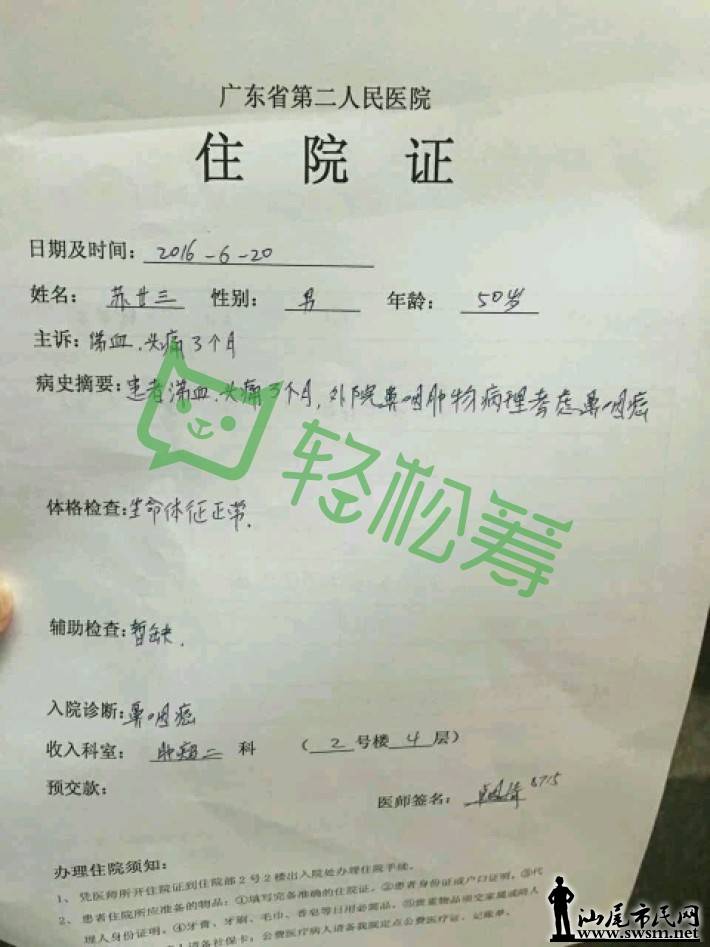 广东省第二人民医院
住院证
日期及时间：2016-6-20
姓名：苏廿三 性别：男 年龄：50岁
主诉：涕血、头痛3个月
病史摘要：患者涕血、头痛3个月，外院鼻咽肿物病理考虑鼻咽癌
轻松筹
体格检查：生命体征正常.
辅助检查：暂缺.
入院诊断：鼻咽癌
收入科室：肿瘤二科 （2号楼4层）
预交款：
医师签名： 8715
办理住院须知：
1、凭医师所开住院证到住院部2号2楼出入院处办理住院手续。
2、患者住院所应准备的物品：①填写完备准确的住院证。②患者身份证或户口证明。③代
理人身份证明。④牙膏、牙刷、毛巾、香皂等日用必需品。⑤贵重物品须交家属或陪人
人请备社保卡，公费医疗病人请备我院定点公费医疗证、记账单。
汕尾市民网
www.swsm.net